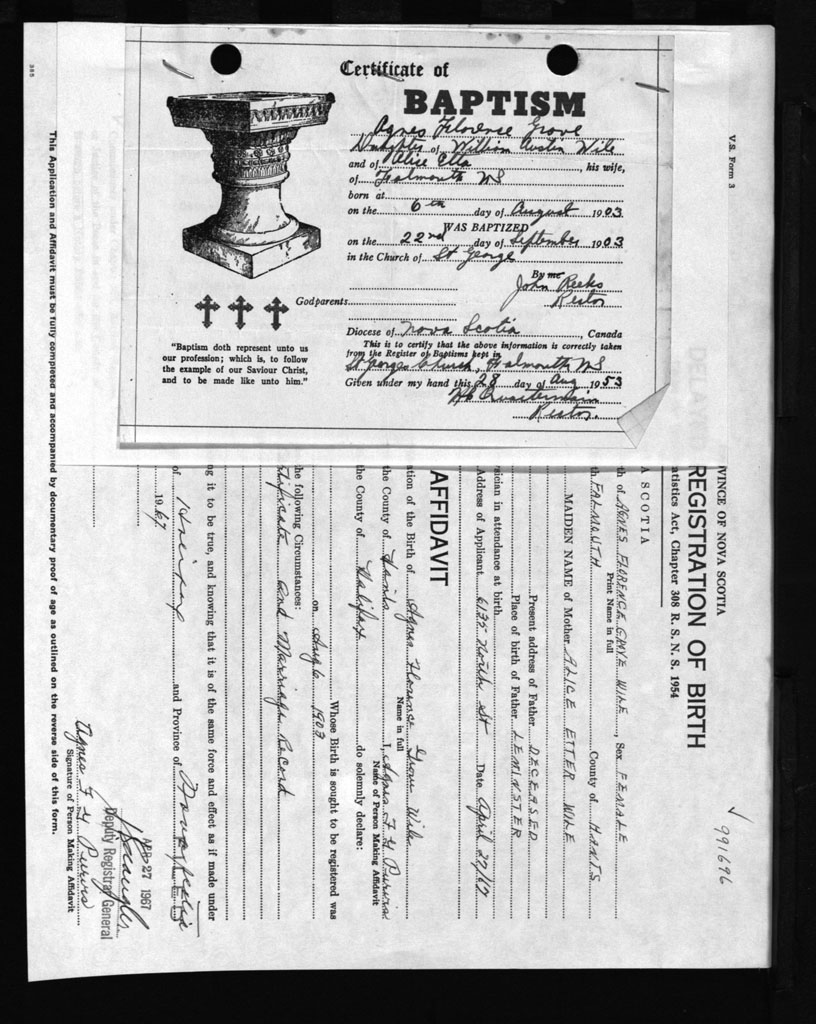 Certificate of
BAPTISM
Agnes Florence Grove
Daughter of William Austin Wile
and of Alice Etta, his wife,
of Falmouth NS
born at
on the 6th day of August 1903
WAS BAPTIZED
on the 22nd day of September 1903
in the Church of St George
By me
John Reeks
Rector
Godparents
Diocese of Nova Scotia, Canada
This is to certify that the above information is correctly taken
from the Register of Baptisms kept in
St Georges Church, Falmouth NS
Given under my hand this 28 day of Aug 1953
Rector.
"Baptism doth represent unto us
our profession; which is, to follow
the example of our Saviour Christ,
and to be made like unto him."
V.S. Form 3
991696
OVINCE OF NOVA SCOTIA
REGISTRATION OF BIRTH
atistics Act, Chapter 308 R. S. N. S. 1954
A SCOTIA
th of AGNES FLORENCE GROVE WILE, Sex FEMALE
Print Name in full
th FALMOUTH County of HANTS
MAIDEN NAME of Mother ALICE ETTER WILE
Present address of Father DECEASED
Place of birth of Father LEMINSTER
sician in attendance at birth
Address of Applicant 6135 North St Date April 22/67
AFFIDAVIT
ation of the Birth of Agnes Florence Grove Wile
Name in full
the County of Hants I, Agnes F. G Purvis
Name of Person Making Affidavit
the County of Halifax do solemnly declare:
Whose Birth is sought to be registered was
on Aug 6 1903
he following Circumstances:
rtificate and Marriage Record
ng it to be true, and knowing that it is of the same force and effect as if made under
of Halifax and Province of Nova Scotia
1967
27 1967
Deputy Registrar General
Agnes F. G Purvis
Signature of Person Making Affidavit
This Application and Affidavit must be fully completed and accompanied by documentary proof of age as outlined on the reverse side of this form.